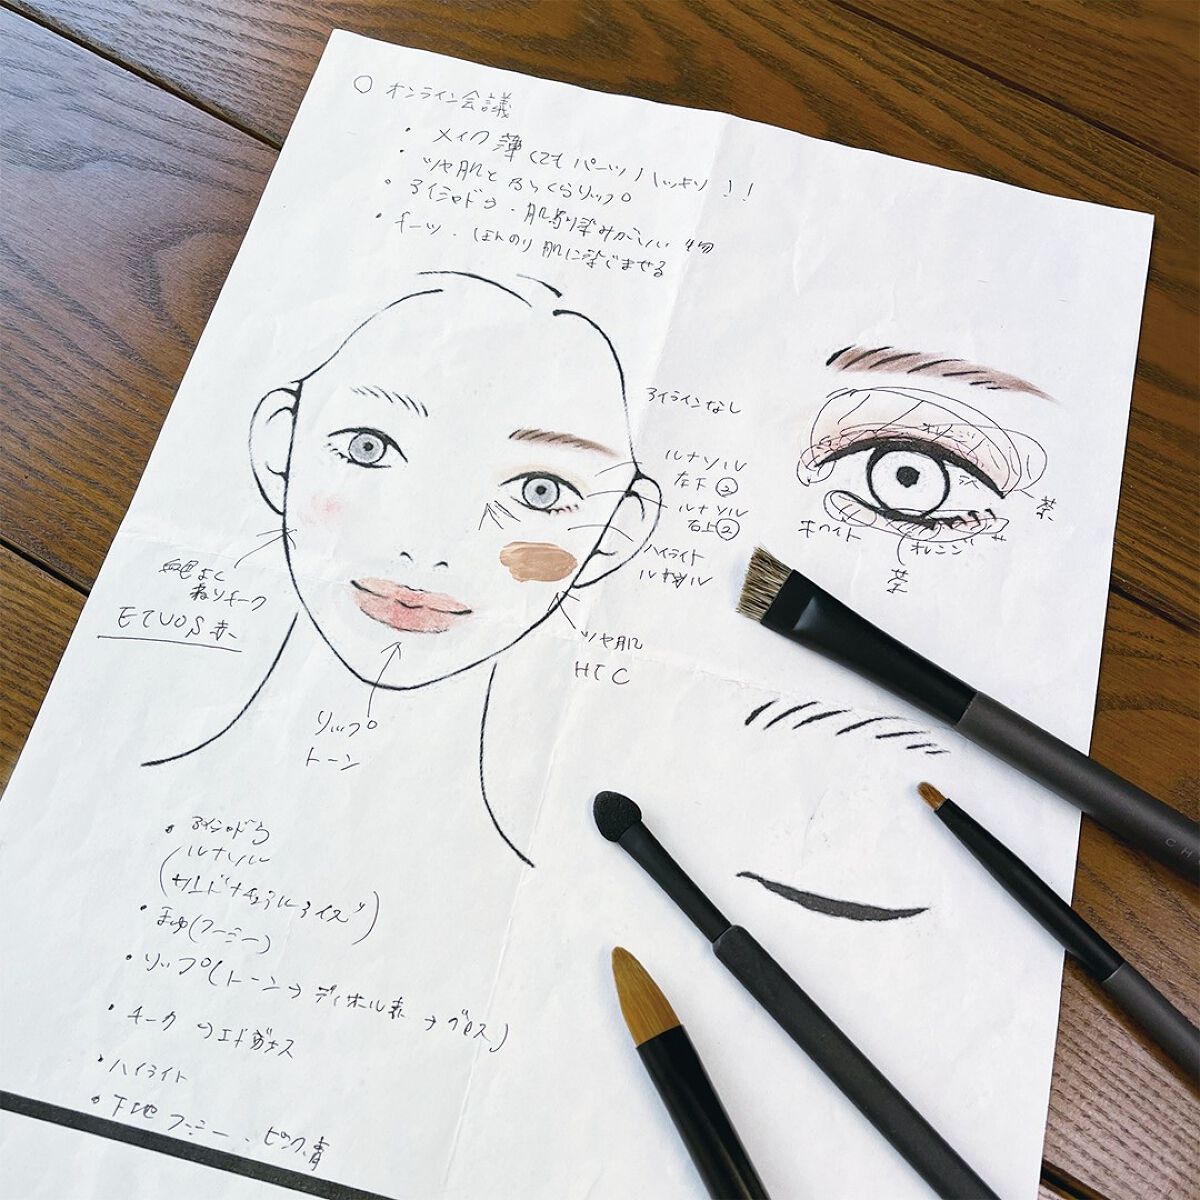 ○ オンライン会議
・メイク薄くてもパーツハッキリ!!
・ツヤ肌とふっくらリップ
・アイシャドウ・肌馴染みがいい物
・チーク・ほんのり肌に染じませる
アイラインなし
ルナソル
左下②
ルナソル
右上②
ハイライト
ルナソル
オレンジ
茶
ホワイト
オレンジ
茶
血色よく
ねりチーク
ETVOS 赤
ツヤ肌
HTC
リップ
トーン
・アイシャドウ
ルナソル
(サンドナチュラルアイズ)
・まゆ(フーミー)
・リップ(トーン→ディオール赤→グロス)
・チーク→エトヴォス
・ハイライト
・下地 フーミー・ピンク、青
CH